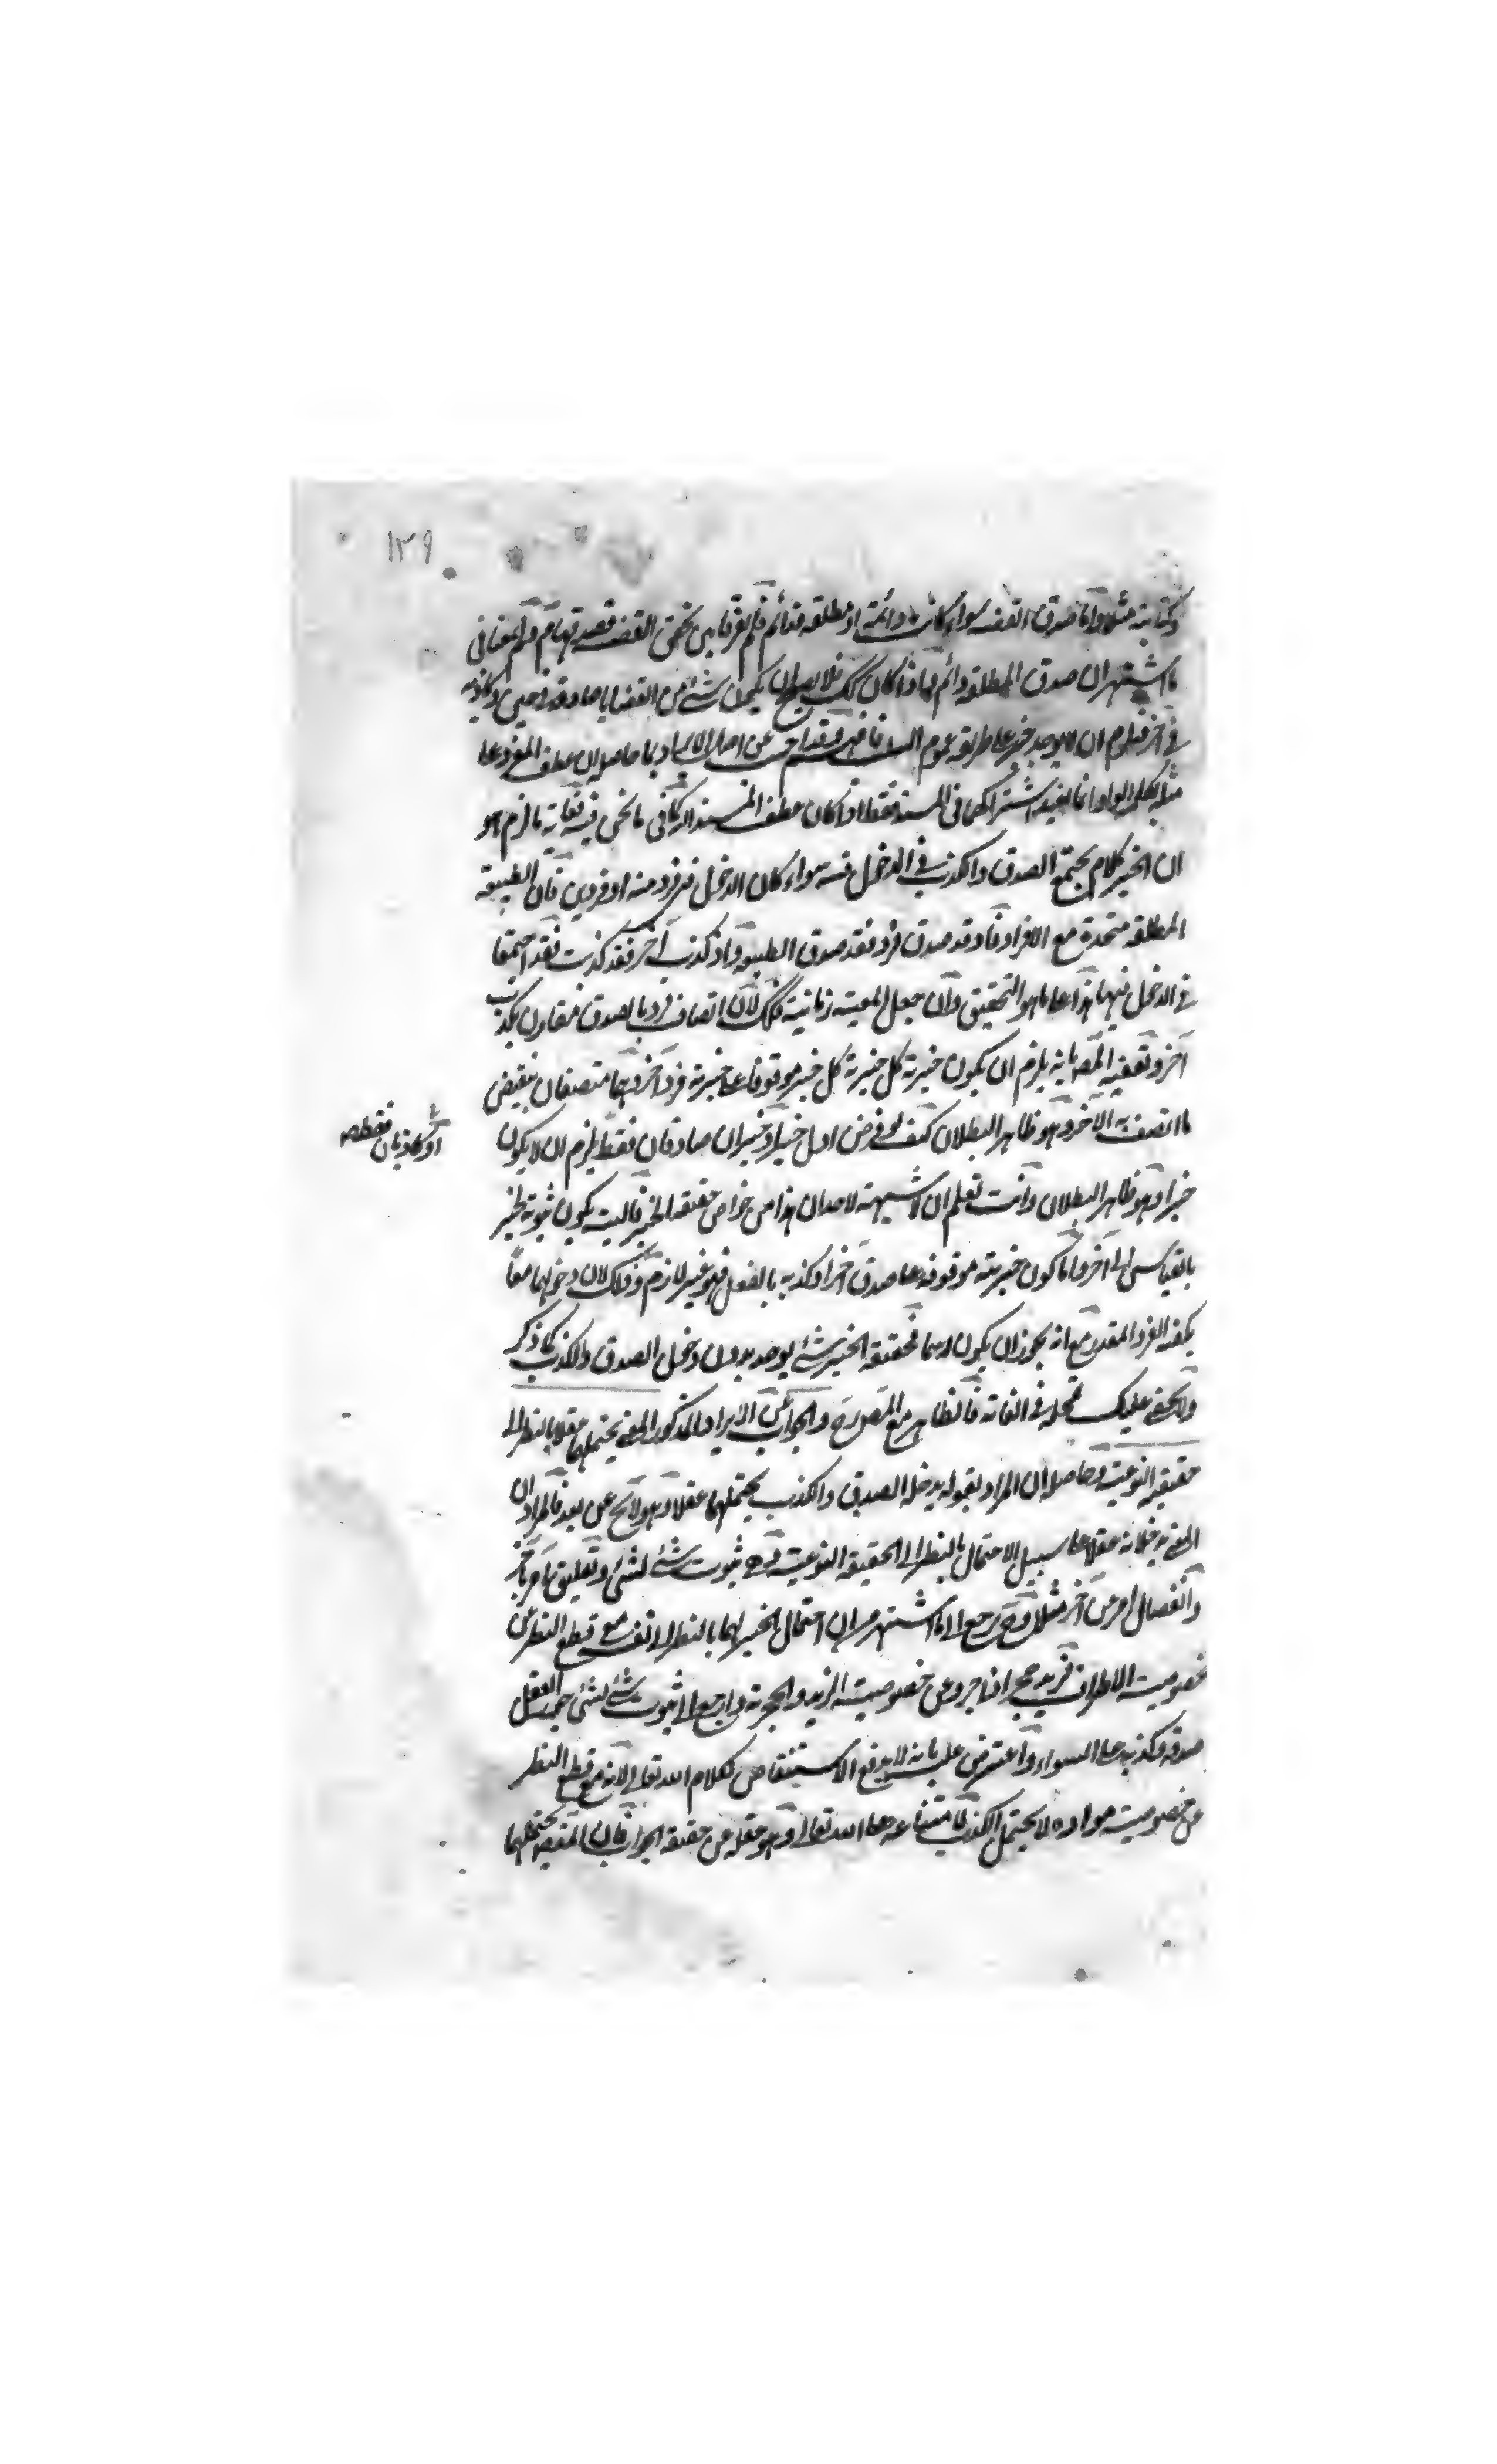 ١٣٩
وكتابته مثلا واما صدق القضية سواء كانت دائمة او مطلقة فدائم فلم يفرقا بين تحقق القضية وصدقها
ما اشتهر ان صدق المطلقة دائم واذا كان كك فلا يصح ان يكون شئ من القضايا صادقة في حين وكاذبة
في آخر فيلزم ان لا يوجد خبر على طريقة عموم السلب فافهم وقد اجيب عن اصل الايراد بما حاصله ان عطف المفرد على
مثله بكلمة الواو انما يفيد اشتراكهما في المسند فقط اذا كان عطف المسند اليه كما فيما نحن فيه فغاية ما لزم هو
ان الخبر كلام يجتمع الصدق والكذب في الدخول فيه سواء كان الدخول في فرد منه او فردين فان الطبيعة
المطلقة متحدة مع الافراد فاذا قد صدق فرد فقد صدق الطبيعة واذ كذب آخر فقد كذبت فقد اجتمعا
في الدخول فيها هذا على ما هو التحقيق وان جعل المعية زمانية فكك لان اتصاف فرد بالصدق مقارن بكذب
آخر وتعقبه المص بانه يلزم ان يكون خبرية كل خبرية كل خبر موقوفا على خبرية فرد آخر وهما متصفان بنقيض
ما اتصف به الآخر وهو ظاهر البطلان كيف لو فرض اول خبر او خبران صادقان فقط يلزم ان لا يكون
او كاذبان فقط صح
خبرا وهو ظاهر البطلان وانت تعلم ان لا شبهة لاحد ان هذا من خواص حقيقة الخبر فاليته يكون ثبوته لخبر
بالقياس الى آخر واما كون خبريته موقوفة على صدق آخر او كذبه بالفعل فهو غير لازم وذلك لان دخولهما معا
يكفيه الفرد المقدر مع انه يجوز ان يكون رسما فحقيقة الخبر شئ يوجد بدون دخول الصدق والكذب كما ذكر
ولا يخفى عليك تمحله في الغاية فالظاهر مع المص رح والجواب عن الايراد المذكور المعنى يحتملهما عقلا بالنظر الى
حقيقته النوعية وحاصله ان المراد بقوله يدخله الصدق والكذب يحتملهما عقلا وهو لائح عن بعد فالمراد ان
المعنى يدخلانه عقلا على سبيل الاحتمال بالنظر الى الحقيقة النوعية وهى ثبوت شئ لشئ وتعليق امر بآخر
وانفصال امر عن آخر مثلا وح رجع الى ما اشتهر من ان احتمال الخبر لهما بالنظر الى نفسه مع قطع النظر عن
خصوصيت الاطراف فزيد حجر اذا جرد عن خصوصيته الزيد والحجرية وارجع الى ثبوت شئ لشئ جوز العقل
صدقه وكذبه على السواء واعترض عليه بانه لا يدفع الاستنقاض بكلام الله تعالى لانه مع قطع النظر
عن خصوصيت مواده لا يحتمل الكذب لامتناعه على الله تعالى وهو غفلة عن حقيقة الجواب فان المقصود يحتملهما